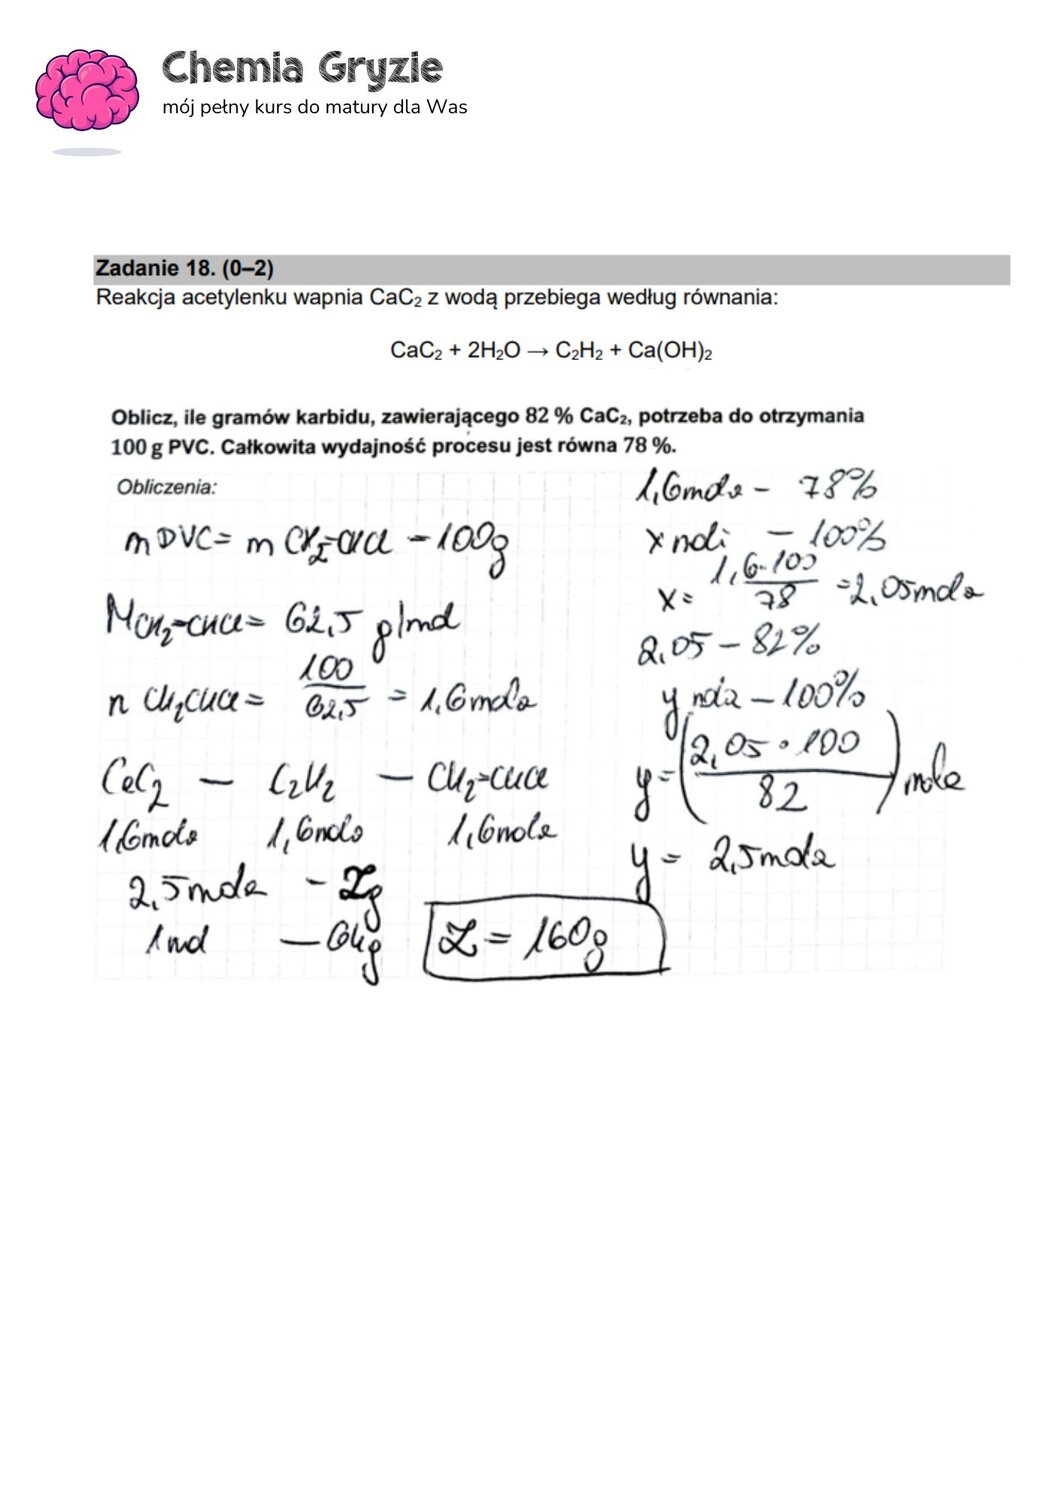 Chemia Gryzie
mój pełny kurs do matury dla Was
Zadanie 18. (0–2)
Reakcja acetylenku wapnia CaC₂ z wodą przebiega według równania:
CaC₂ + 2H₂O → C₂H₂ + Ca(OH)₂
Oblicz, ile gramów karbidu, zawierającego 82 % CaC₂, potrzeba do otrzymania
100 g PVC. Całkowita wydajność procesu jest równa 78 %.
Obliczenia:
mPVC = m CH₂=CHCl = 100g
M CH₂=CHCl = 62,5 g/mol
n CH₂CHCl = 100/62,5 = 1,6 mola
CaC₂ — C₂H₂ — CH₂=CHCl
1,6mola 1,6mola 1,6mola
2,5mola - Zg
1mol — 64g
Z = 160g
1,6mola - 78%
x moli - 100%
x = 1,6·100/78 = 2,05mola
2,05 - 82%
y mola - 100%
y = (2,05·100/82) mola
y = 2,5mola